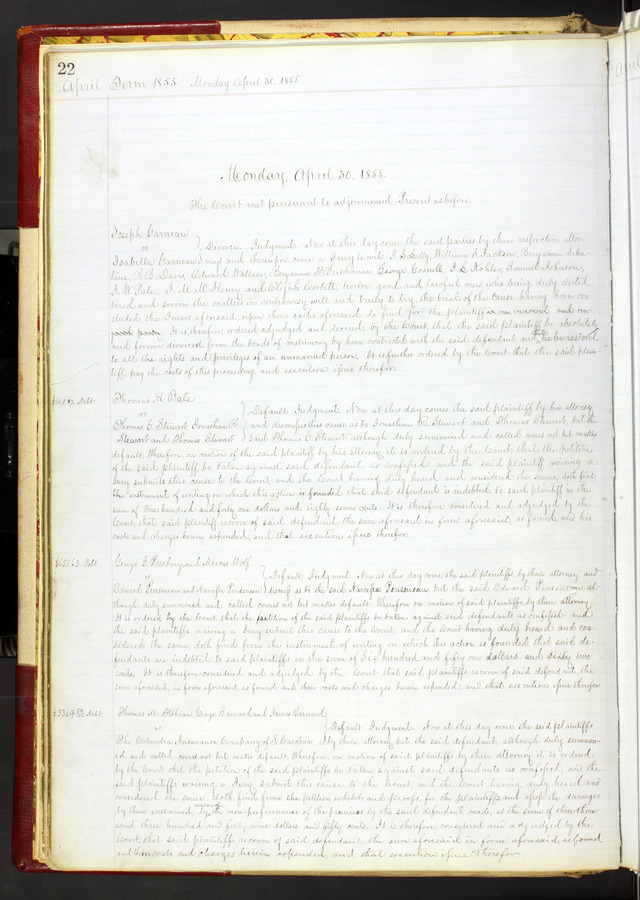 22
April Term 1855 Monday April 30, 1855
Monday, April 30, 1855.
The Court met pursuant to adjournment. Present as before.
Joseph Garneau
vs } Divorce. Judgment. Now at this day come the said parties by their respective attor-
Isabella Garneau neys and thereupon come a Jury to wit, William S. Jackson, Benjamin
R. B. Davis, Edward Wallace, Benjamin George I. L. Kohler, Samuel Johnson,
J. W. Pate, J. M. McHenry and Elijah twelve good and lawful men, who being duly elected
tried and sworn the matters in controversy well and truly to try, the trial of the cause having been con-
cluded the Jurors aforesaid, upon their oaths aforesaid do find for the plaintiff
It is therefore ordered adjudged and decreed by the Court that the said plaintiff be absolutely
and forever divorced from the bonds of matrimony by him contracted with the said defendant and be restored
to all the rights and privileges of an unmarried person. It is further ordered by the Court that the said plain-
tiff, pay the costs of this proceeding and execution issue therefor.
Debt Thomas H. Bate
vs } Default Judgment. Now at this day comes the said plaintiff by his attorney
Thomas G. Stewart, Jonathan R. and dismisses this cause as to Jonathan R. Stewart and Thomas Stewart, but the
Stewart and Thomas Stewart said Thomas G. Stewart, although duly summoned and called comes not but makes
default, Wherefore, on motion of the said plaintiff by his attorney it is ordered by the Court, that the petition
of the said plaintiff be taken against said defendant as confessed: and the said plaintiff waiving a
Jury submits this cause to the Court, and the Court having duly heard and considered the same, doth find
the instrument of writing on which this action is founded, that said defendant is indebted to said plaintiff in the
sum of One hundred and forty one dollars and eighty seven cents. It is therefore considered and adjudged by the
Court, that said plaintiff recover of said defendant, the sum aforesaid in form aforesaid, so found, and his
costs and charges herein expended, and that execution issue therefor.
Debt George G. Presbury and Marcus Wolf
vs } Default, Judgment. Now at this day come the said plaintiffs, by their attorney and
Edward Pensenean and Narcisse Pensenean dismiss as to the said Narcisse Pensenean but the said Edward Pensenean, al-
though, duly summoned and called comes not but makes default: Wherefore on motion of said plaintiffs, by their attorney
It is ordered by the Court, that the petition of the said plaintiffs be taken against said defendants as confessed and
the said plaintiffs waiving a Jury submit this cause to the Court, and the Court having duly heard and con-
sidered the same, doth find from the instrument of writing on which this action is founded, that said de-
fendants are indebted to said plaintiffs in the sum of Six hundred and fifty one dollars and sixty two
cents. It is therefore considered and adjudged by the Court that said plaintiffs recover of said defendant the
sum aforesaid, in form aforesaid, so found, and their costs and charges herein expended, and that execution issue therefor.
Debt Thomas M. and James Barnard
vs } Default Judgment. Now at this day come the said plaintiffs
The Insurance Company of S. Carolina by their attorney, but the said defendant, although duly summon-
ed and called comes not but makes default, Wherefore, on motion of said plaintiffs by their attorney it is ordered
by the Court that the petition of the said plaintiffs be taken against said defendants as confessed, and the
said plaintiffs waiving a Jury submits this cause to the Court and the Court having duly heard and
considered the same doth find from the petition exhibits and proofs, for the plaintiffs and assess the damages
by them sustained by the non-performance of the promises by the said defendant made, at the sum of three thou-
sand three hundred and forty nine dollars and fifty cents. It is therefore considered and adjudged by the
Court, that said plaintiffs recover of said defendant the sum aforesaid in form aforesaid, so found
and their costs and charges herein expended, and that execution issue therefor
April